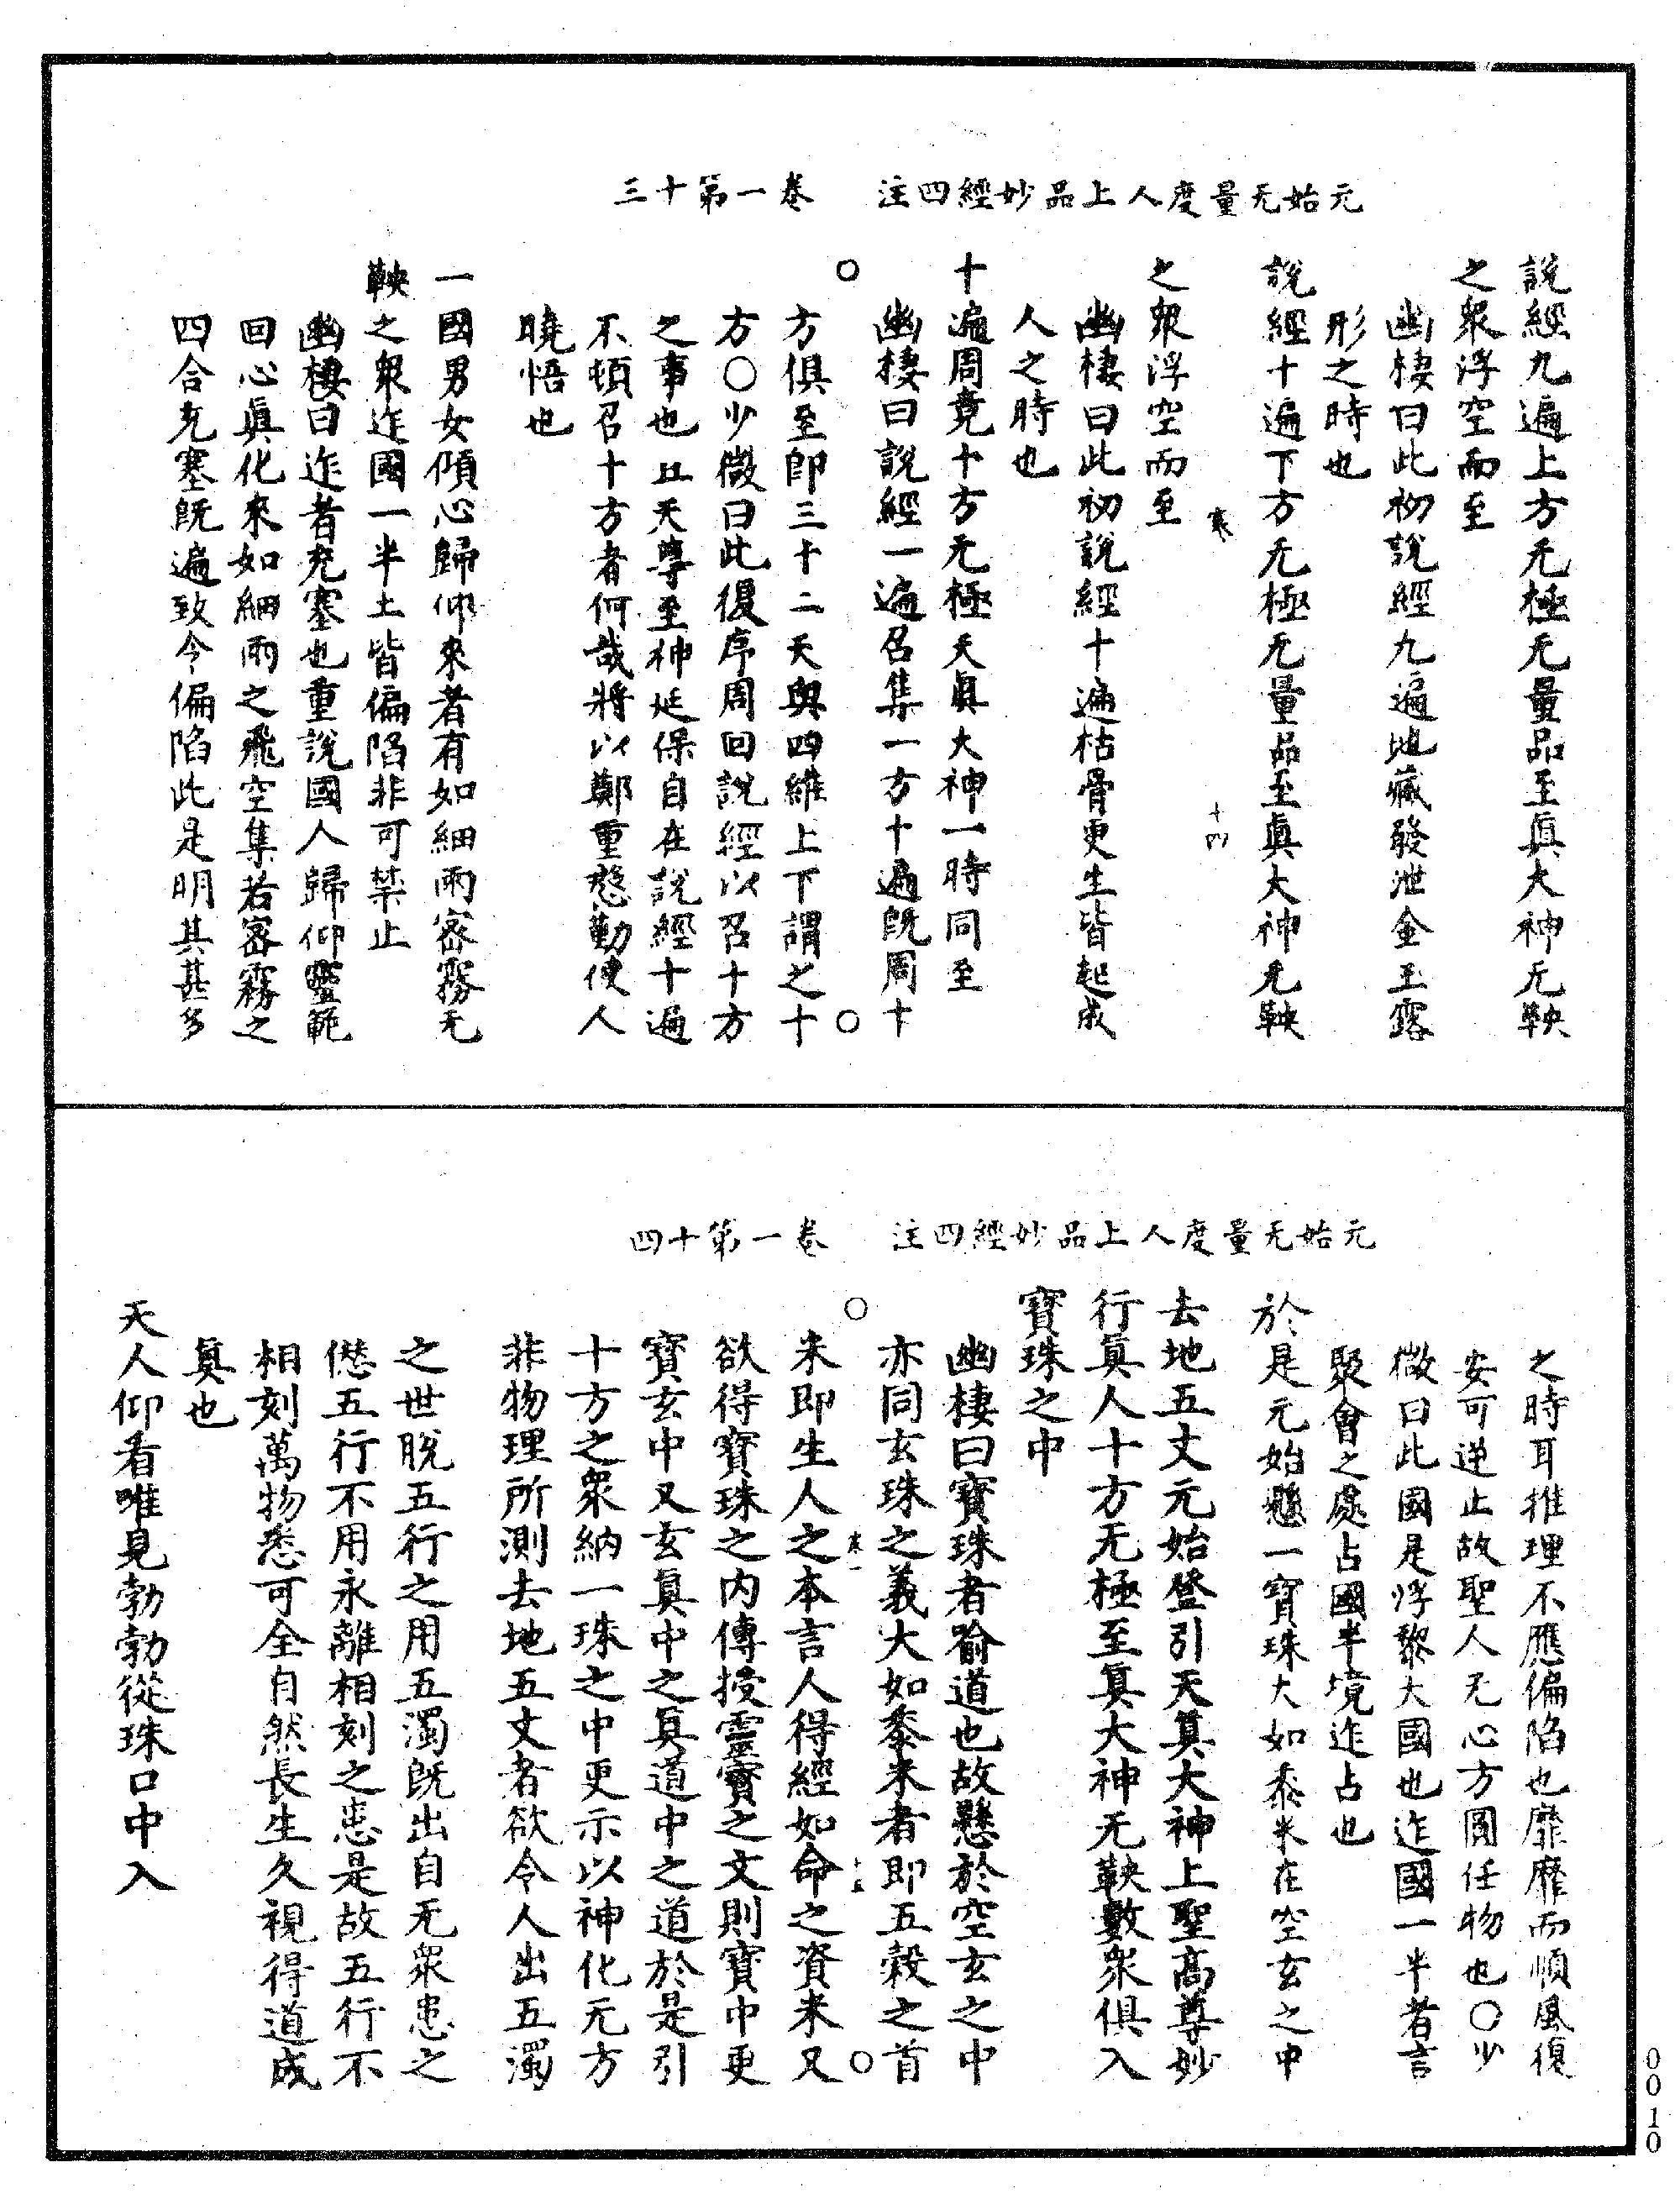 元始无量度人上品妙經四注　卷一第十三
說經九遍上方无極无量品至眞大神无鞅
之衆浮空而至
幽棲曰此初說經九遍地藏發泄金玉露
形之時也
說經十遍下方无極无量品至眞大神无鞅
寒
十四
之衆浮空而至
幽棲曰此初說經十遍枯骨更生皆起成
人之時也
十遍周竟十方无極天眞大神一時同至
幽棲曰說經一遍召集一方十遍旣周十
方俱至卽三十二天與四維上下謂之十
方○少微曰此復序周回說經以召十方
之事也且天尊至神延保自在說經十遍
不頓召十方者何哉將以鄭重慇勤使人
曉悟也
一國男女傾心歸仰來者有如細雨密霧无
鞅之衆迮國一半土皆偏陷非可禁止
幽棲曰迮者充塞也重說國人歸仰靈範
回心眞化來如細雨之飛空集若密霧之
四合充塞旣遍致令偏陷此是明其甚多
元始无量度人上品妙經四注　卷一第十四
之時耳推理不應偏陷也靡靡而順風復
安可逆止故聖人无心方圓任物也○少
微曰此國是浮黎大國也迮國一半者言
聚會之處占國半境迮占也
於是元始懸一寶珠大如黍米在空玄之中
去地五丈元始登引天眞大神上聖高尊妙
行眞人十方无極至眞大神无鞅數衆俱入
寶珠之中
幽棲曰寶珠者喻道也故懸於空玄之中
亦同玄珠之義大如黍米者卽五穀之首
寒一
十五
米卽生人之本言人得經如命之資米又
欲得寶珠之內傳授靈寶之文則寶中更
寶玄中又玄眞中之眞道中之道於是引
十方之衆納一珠之中更示以神化无方
非物理所測去地五丈者欲令人出五濁
之世脫五行之用五濁旣出自无衆患之
僁五行不用永離相刻之患是故五行不
相刻萬物悉可全自然長生久視得道成
眞也
天人仰看唯見勃勃從珠口中入
0010